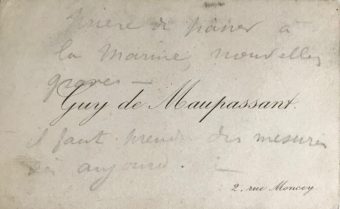 Prière de passer à
la Marine, nouvelles
graves —
Guy de Maupassant.
il faut prendre des mesures
dès aujourd.
2, rue Moncey